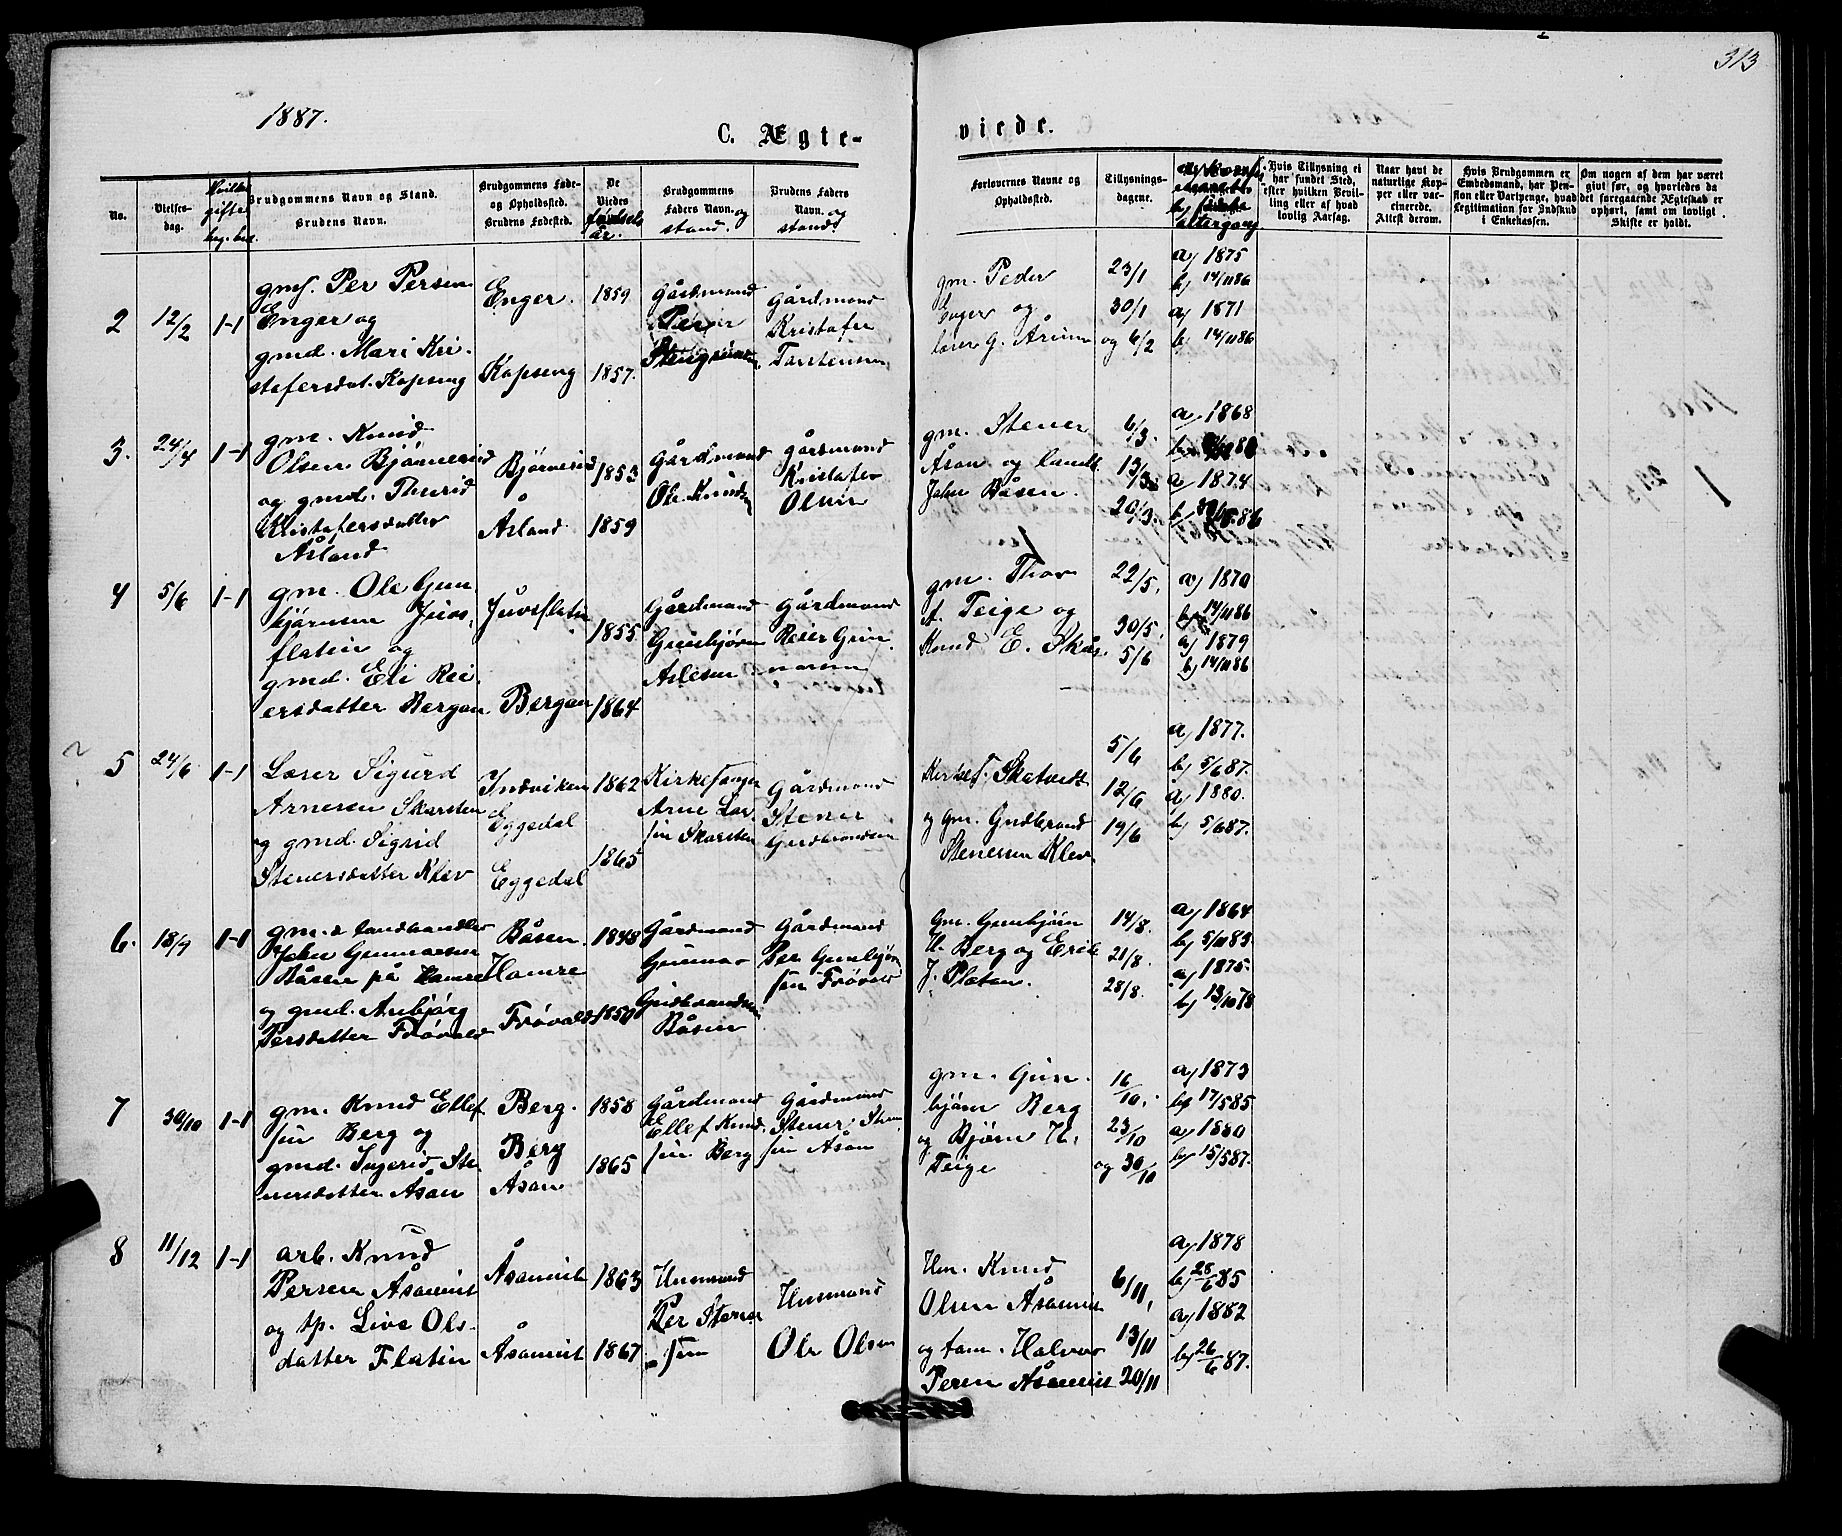 313
1887.
C. Ægte-
viede.
No.
Vielses-
dag.
gifte
Brudgommens Navn og Stand.
Brudens Navn.
Brudgommens Føde-
og Opholdssted.
Brudens Fødested.
De
Viedes
fødsels
år.
Brudgommens
Faders Navn. og
stand.
Brudens Faders
Navn. og
stand.
Forlovernes Navne og
Opholdssted.
Tillysnings-
dagene.
altergang
Hvis Tillysning ei
har fundet Sted,
efter hvilken Bevil-
ling eller af hvad
lovlig Aarsag.
Naar havt de
naturlige Kop-
per eller vac-
cinerede.
Attest derom.
Hvis Brudgommen er
Embedsmand, har Pen-
sion eller Vartpenge, hvad
Legitimation for Indskud
i Enkekassen.
Om nogen af dem har været
gift før, og hvorledes da
det foregaaende Ægteskab er
ophørt, samt om lovligt
Skifte er holdt.
2
12/2
1-1
gms. Per Persen
Enger og
gmd. Mari Kri-
stofersdat. Kopseng
Enger.
Kopseng
1859
1857.
Gårdmand
Gårdmand
Kristofer
Torstensen
gm. Peder
Enger og
23/1
30/1
og 6/2
a) 1875
b) 14/11 86
a) 1871
b) 14/11 86
3.
24/4
1-1
gm. Knud
Olsen Bjørnerud
og gmd. Thurid
Kristofersdatter
Åsland
Bjørnerud
Åsland
1853
1859
Gårdmand
Ole Knudsen
Gårdmand
Kristofer
Olsen
gm. Stener
Åsan og landh.
John Båsen.
6/3.
13/3
20/3.
a) 1868
a) 1874
4
5/6
1-1
gm. Ole Gun
bjørnsen Juvs
flatin og
gmd. Eli Rei-
ersdatter Bergan
Juvsflatin
Bergan
1855
1864
Gårdmand
Gunbjørn
Aslesen
Gårdmand
Reier Gun
narsen
gm. Thor
A. Teige og
Knud E. Skas
22/5.
30/5.
5/6
a) 1870
b) 14/11 86
a) 1879
b) 14/11 86
5
24/6
1-1
Lærer Sigurd
Arnesen Skarsten
og gmd. Sigrid
Stenersdatter Klev
Indviken
Eggedal
Eggedal
1862
1865
Kirkesanger
Arne Lar
sen Skarsten
Gårdmand
Stener
Gudbrandsen
Kirkes. Skatvedt
og gm. Gudbrand
Stenersen Klev
5/6
12/6
19/6
a) 1877.
b) 5/6 87.
a) 1880.
b) 5/6 87.
6.
18/9
1-1
gm. & landhandler
John Gunnarsen
Båsen på Hamre
og gmd. Anbjørg
Persdatter Frøvold
Båsen
Hamre
Frøvold
1848
1859
Gårdmand
Gunnar
Gudbrandsen
Båsen
Gårdmand
Per Gunbjørn
sen Frøvold
Gm. Gunbjørn
H. Berg og Erik
J. Platan.
14/8.
21/8.
28/8.
a) 1864
b) 5/11 83.
a) 1875.
b) 13/10 78
7
30/10
1-1
gm. Knud Ellef
sen Berg og
gmd. Ingerid Ste
nersdatter Åsan
Berg.
Berg
Åsan
1858
1865
Gårdmand
Ellef Knud
sen Berg
Gårdmand
Stener Sten
sen Åsan
gm. Gun
bjørn Berg
og Bjørn H.
Teige
16/10.
23/10
og 30/10
a) 1873
b) 17/5 85
a) 1880
b) 15/5 87.
8
11/12
1-1
arb. Knud
Persen Åsamist
og tp. Live Ols-
datter Flatin
Åsamist
Åsamist
1863
1867
Husmand
Per Stener
sen
Husmand
Ole Olsen
Hm. Knud
Olsen Åsamist
og tøm. Halvor
Persen Åsamist
6/11,
13/11
20/11
a) 1878
b) 28/6 85
a) 1882
b) 26/6 87.